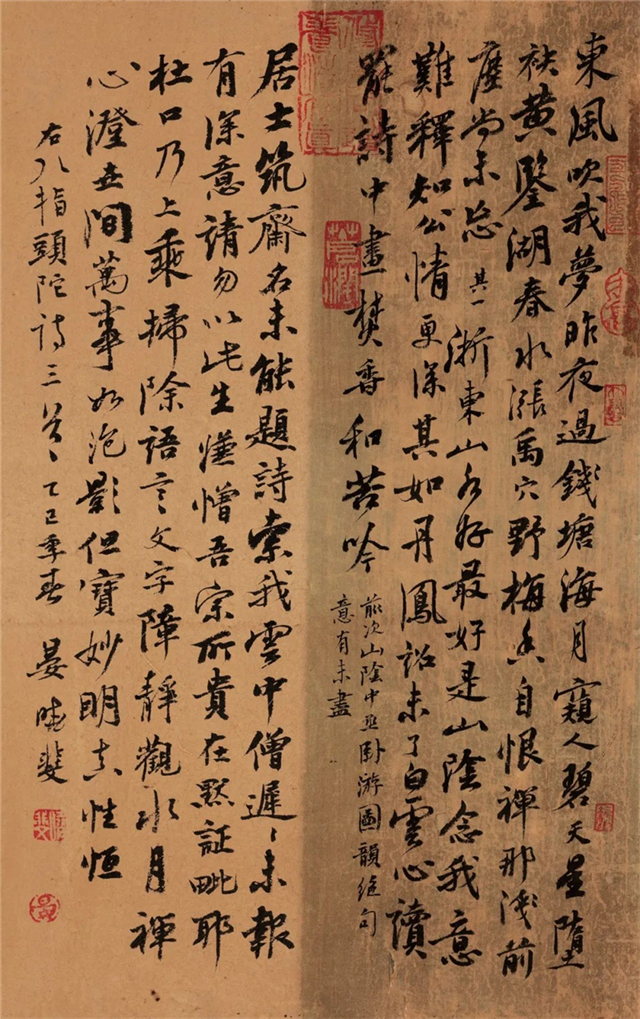 東風吹我夢昨夜過錢塘海月窺人碧天星墮
袂黃鑒湖春水漲禹穴野梅香自恨禪那淺前
塵尚未忘 其一 浙東山水好最好是山陰念我意
難釋知公情更深其如丹鳳詔未了白雲心讀
罷詩中畫焚香和苦吟
前次山陰中丞卧游圖韻絕句
意有未盡
居士筑齋名未能題詩索我雲中僧遲〻未報
有深意請勿以此生慊憎吾宗所貴在默証毗耶
杜口乃上乘掃除語言文字障靜觀水月禪
心澄世間萬事如泡影但寶妙明真性恒
右八指頭陀詩三首 乙巳年春 晏曉斐